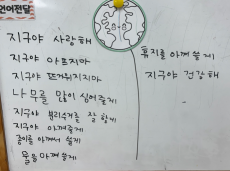 언어전달
지구야 사랑해
지구야 아프지마
지구야 뜨거워지지마
나무를 많이 심어줄게
지구야 분리수거를 잘 할게
지구야 아껴줄게
종이를 아껴서 쓸게
물을 아껴쓸게
휴지를 아껴 쓸게
지구야 건강해